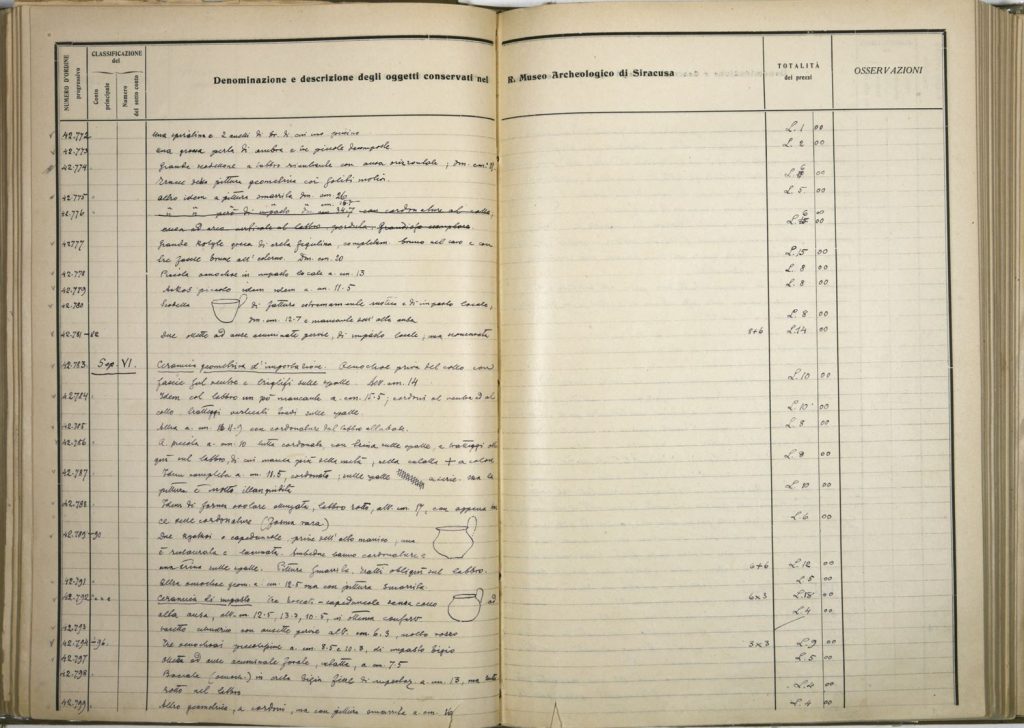 NUMERO D'ORDINE progressivo
CLASSIFICAZIONE del
Conto principale
Numero del sotto conto
Denominazione e descrizione degli oggetti conservati nel R. Museo Archeologico di Siracusa
TOTALITÀ dei prezzi
OSSERVAZIONI
42.772 una spiralina e 2 anelli di br. di cui uno L. 1 00
42.773 una grossa perla di ambra e tre piccole decomposte L. 2 00
42.774 Grande scodellone a labbro rientrante con ansa orizzontale; Dm. cm.
Tracce della pittura geometrica coi soliti motivi L. 00
42.775 Altro idem a pittura smarrita Dm. cm. 26 L. 5 00
42.776 però di impasto Dm. cm. 24.7 con cordonature al collo,
ansa ad arco verticale al labbro, perduta. Grandioso esemplare L. 00
42777 Grande Kotyle greca di creta figulina, completam. bruno nel cavo e con
tre fasce brune all'esterno. Dm. cm. 20 L. 15 00
42.778 Piccola oenochoe in impasto locale a. cm. 13 L. 8 00
42.779 Askos piccolo idem idem a. cm. 11.5 L. 8 00
42.780 Scodella di fattura estremamente rustica e di impasto locale,
Dm. cm. 12.7 e mancante dell'alta ansa L. 8 00
42.781-82 Due ollette ad anse acuminate pervie, di impasto locale, ma 8+6 L. 14 00
42.783 Sep. VI. Ceramica geometrica d'importazione. Oenochoe priva del collo con
fascie sul ventre e triglifi sulle spalle. Alt. cm. 14 L. 10 00
42.784 Idem col labbro un pò mancante a. cm. 15.5; cordoni al ventre ed al
collo tratteggi verticali sulle spalle L. 10 00
42.785 Altra a. cm. con cordonature dal labbro alla base L. 8 00
42.786 A. piccola a. cm. 10 tutta cordonata con sulle spalle, e tratteggi
sul labbro, di cui manca più della metà, nella L. 8 00
42.787 Idem completa a. cm. 11.5, cordonata; sulle spalle a serie. ma la
pittura è molto illanguidita L. 10 00
42.788 Idem di forma ovolare allungata, labbro rotto, alt. cm. 17, con appena
ce delle cordonature (Forma rara) L. 6 00
42.789-90 Due Kyathoi o capeduncole, prive dell'alto manico, una
è restaurata e lacunata. Ambedue hanno cordonature e
sulle spalle. Pittura smarrita. Tratti obliqui sul labbro. 6+6 L. 12 00
42.791 Altra oenochoe geom. a. cm. 12.5 ma con pittura smarrita L. 5 00
42.792 Ceramica di impasto. Tre boccali-capeduncole senza collo ad 6x3 L. 18 00
alta ansa, alt. cm. 12.5, 13.2, 10.5, di ottima conserv. L. 4 00
42.793 vasetto con ansette pervie alt. cm. 6.3, molto rozzo
42.794-96 Tre oenochoai piccolissime a. cm. 8.5 e 10.2, di impasto bigio 3x3 L. 9 00
42.797 Olletta ad anse acuminate forate, a. cm. 7.5 L. 5 00
42.798 Boccale (oenoch.) in creta bigia fine di a. cm. 13, ma
rotto nel labbro L. 4 00
42.799 Altro geometrico, a cordoni, ma con pittura smarrita a. cm. L. 4 00